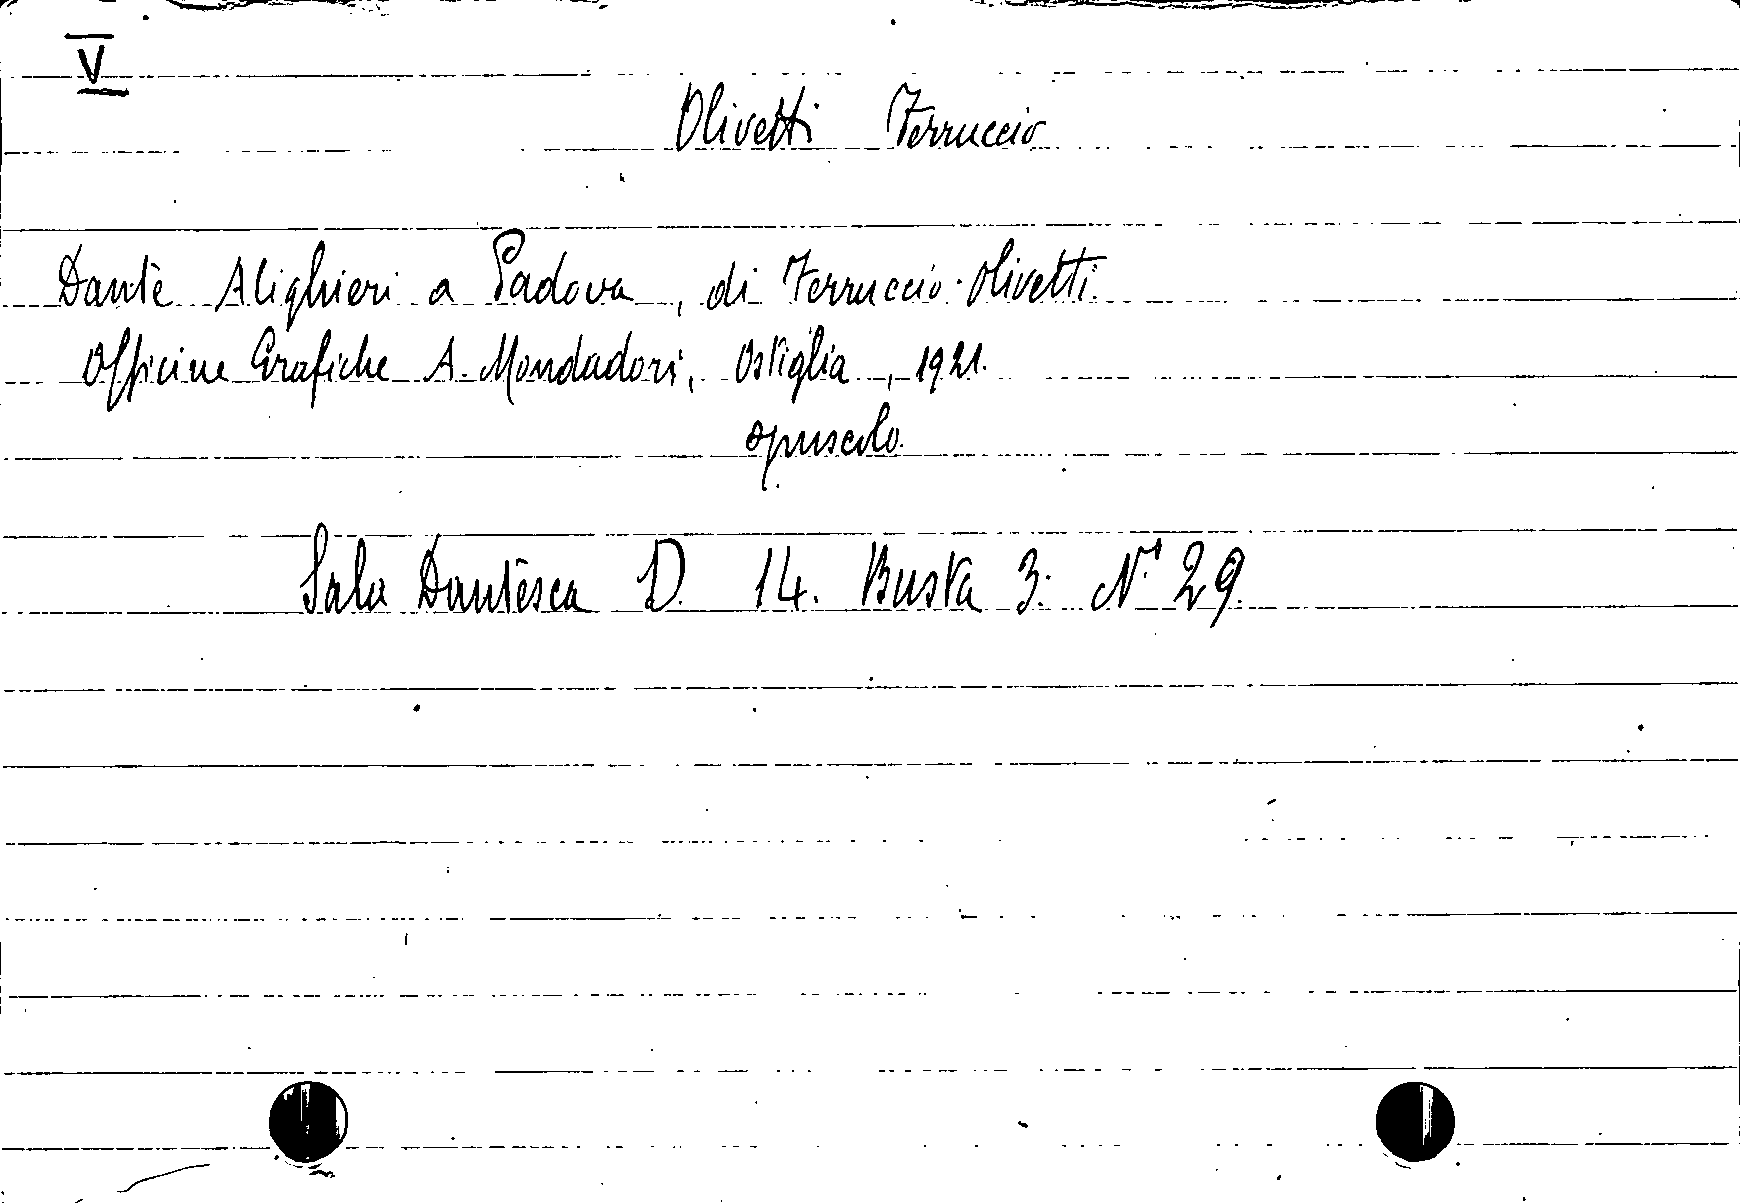 V
Olivetti Ferruccio
Dante Alighieri a Padova, di Ferruccio Olivetti.
Officine Grafiche A. Mondadori, Ostiglia, 1921.
opuscolo.
Sala Dantesca D. 14. Busta 3. N. 29.